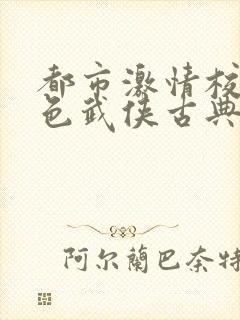 都市激情校
色武侠古典
阿尔蘭巴奈特